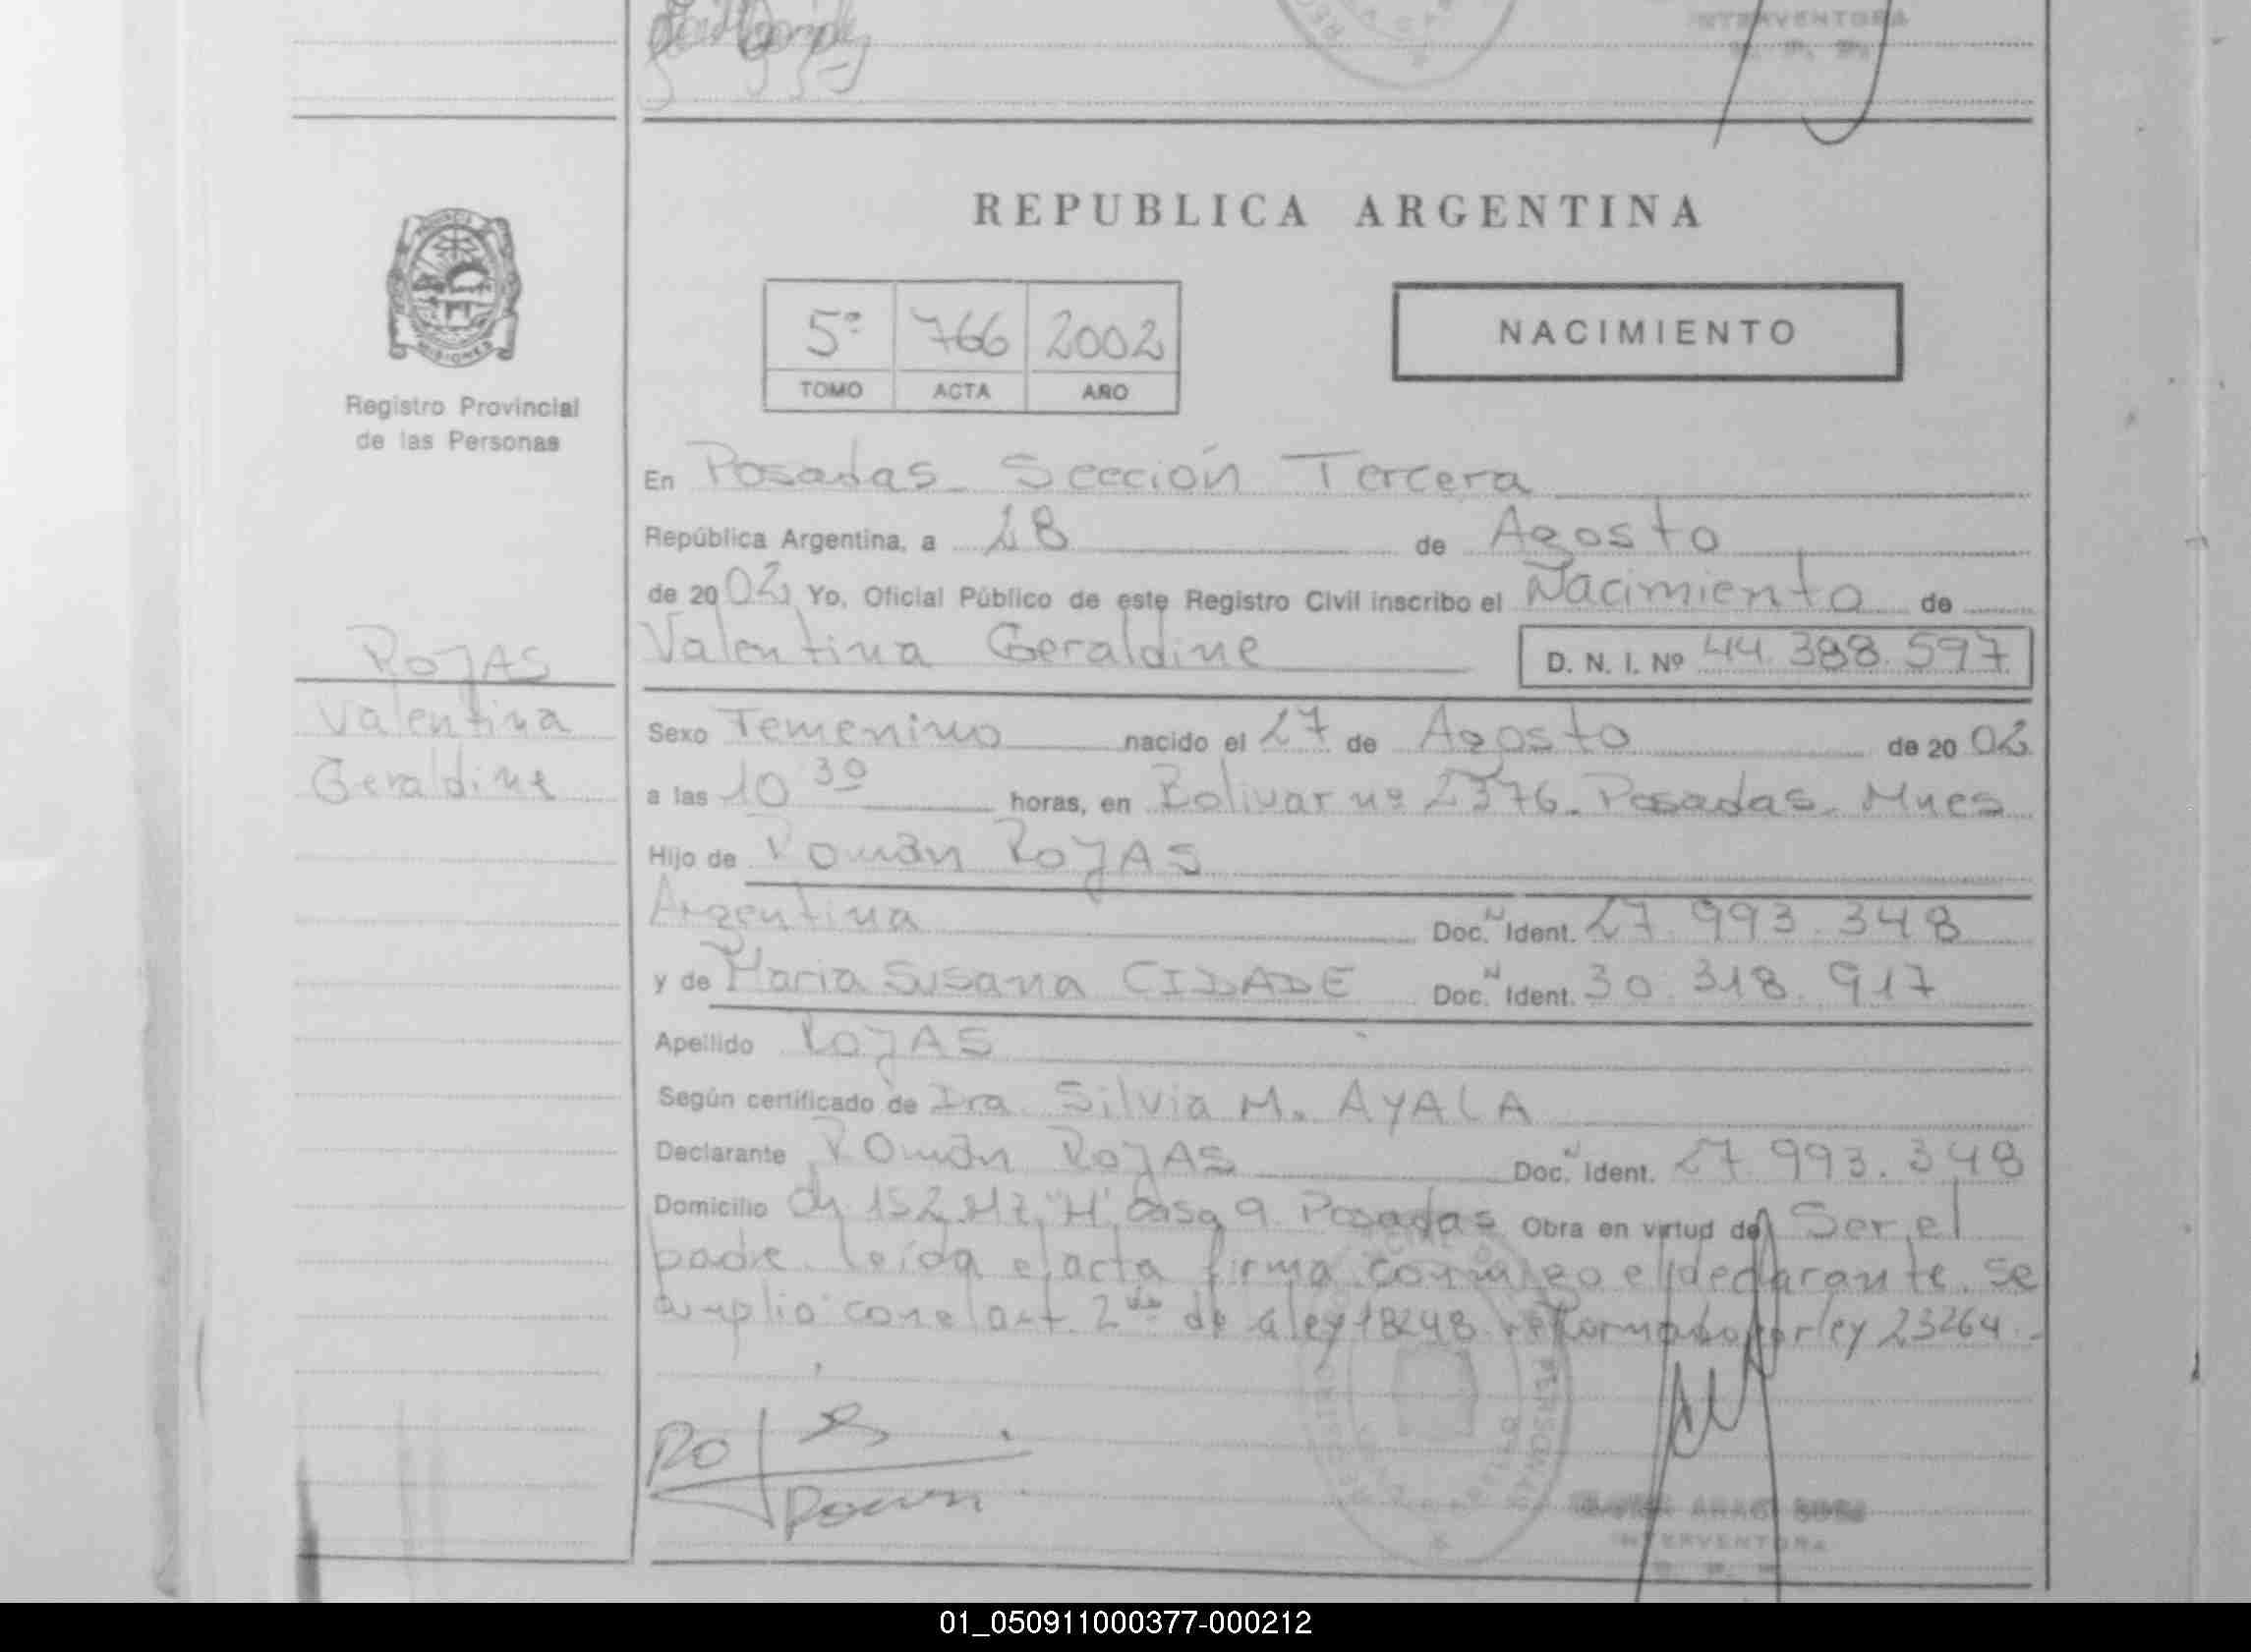 INTERVENTORA
REPUBLICA ARGENTINA
PROVINCIA
MISIONES
5º 766 2002
TOMO ACTA AÑO
NACIMIENTO
Registro Provincial
de las Personas
En Posadas - Sección Tercera
República Argentina, a 28 de Agosto
de 2002 Yo, Oficial Público de este Registro Civil inscribo el Nacimiento de
Valentina Geraldine D. N. I. Nº 44.388.597
ROJAS
Valentina
Geraldine
Sexo Femenino nacido el 27 de Agosto de 2002
a las 10 30 horas, en Bolivar nº 2376. Posadas. Mnes
Hijo de Román ROJAS
Argentina Doc. N Ident. 27.993.348
y de Maria Susana CIDADE Doc. N Ident. 30.318.917
Apellido ROJAS
Según certificado de Dra. Silvia M. AYALA
Declarante Román ROJAS Doc. N Ident. 27.993.348
Domicilio Ch 152 Mz "H" Casa 9 Posadas Obra en virtud de Ser el
padre. Leída el acta firma conmigo el declarante. se
amplio con el art. 2do de la ley 18248 reformado por ley 23264.-
INTERVENTORA
01_050911000377-000212